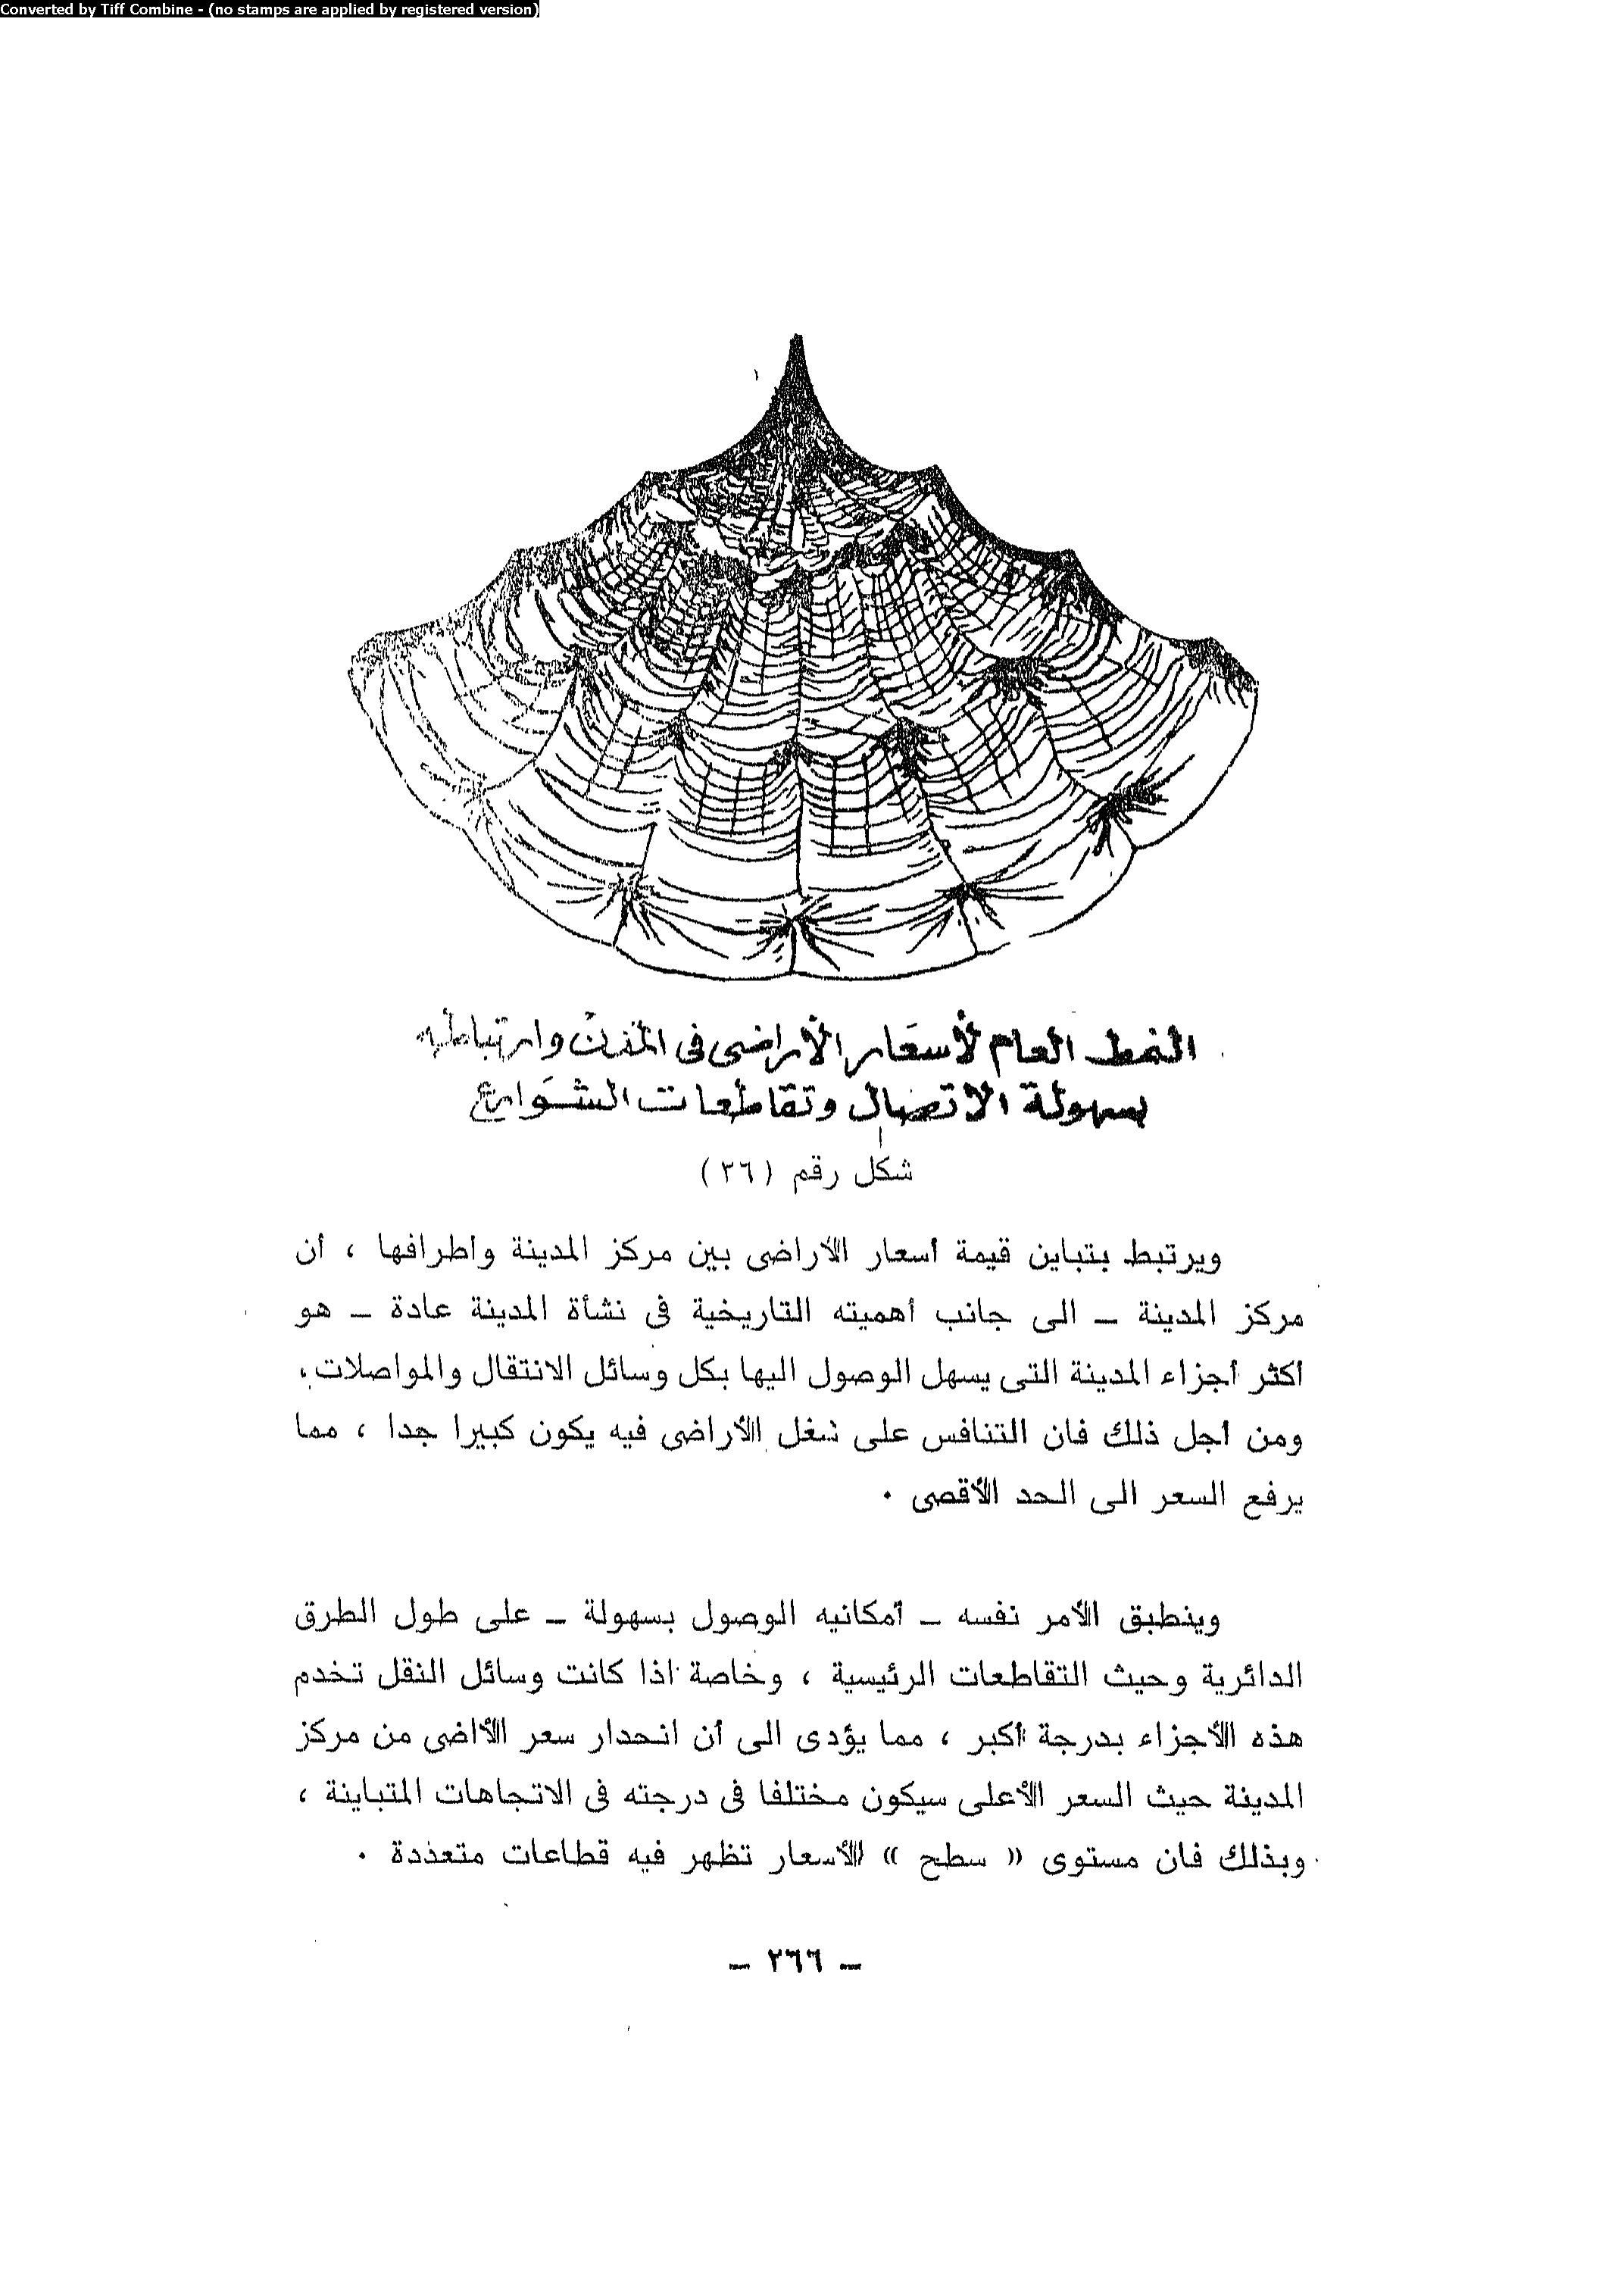 Converted by Tiff Combine - (no stamps are applied by registered version)
النمط العام لأسعار الأراضى فى المدن وارتباطه
بسهولة الاتصال وتقاطعات الشوارع
شكل رقم (٢٦)
ويرتبط بتباين قيمة أسعار الأراضى بين مركز المدينة واطرافها ، أن
مركز المدينة – الى جانب أهميته التاريخية فى نشأة المدينة عادة – هو
أكثر أجزاء المدينة التى يسهل الوصول اليها بكل وسائل الانتقال والمواصلات ،
ومن أجل ذلك فان التنافس على شغل الأراضى فيه يكون كبيرا جدا ، مما
يرفع السعر الى الحد الأقصى ٠
وينطبق الأمر نفسه – أمكانيه الوصول بسهولة – على طول الطرق
الدائرية وحيث التقاطعات الرئيسية ، وخاصة اذا كانت وسائل النقل تخدم
هذه الأجزاء بدرجة أكبر ، مما يؤدى الى أن انحدار سعر الأاضى من مركز
المدينة حيث السعر الأعلى سيكون مختلفا فى درجته فى الاتجاهات المتباينة ،
وبذلك فان مستوى « سطح » الأسعار تظهر فيه قطاعات متعددة ٠
– ٢٦٦ –